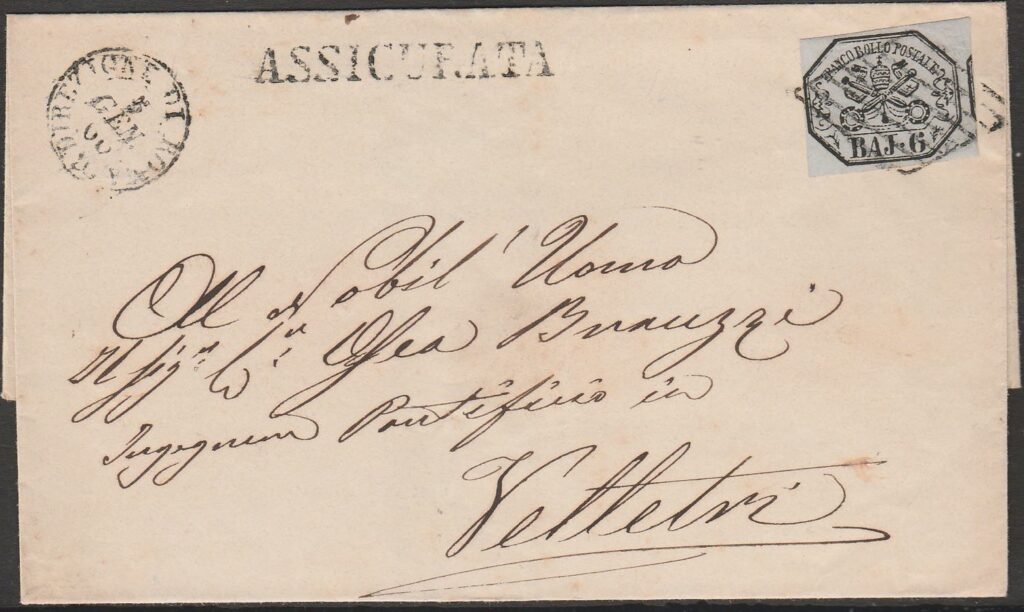 DIREZIONE DI ROMA
GEN
ASSICURATA
FRANCO BOLLO POSTALE
BAJ. 6
Al Nobil' Uomo
Il Sigr Osea Brauzzi
Ingegnere Pontificio in
Velletri